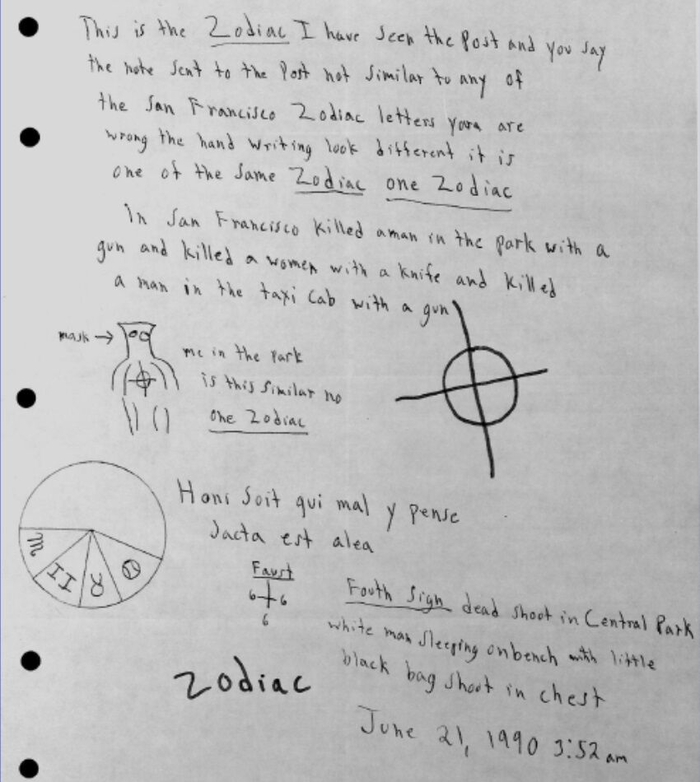 This is the Zodiac I have seen the Post and you say
the note sent to the Post not similar to any of
the San Francisco Zodiac letters you are
wrong the hand writing look different it is
one of the same Zodiac one Zodiac
In San Francisco killed a man in the park with a
gun and killed a women with a knife and killed
a man in the taxi cab with a gun
mask →
me in the park
is this similar no
one Zodiac
Honi soit qui mal y pense
Jacta est alea
Faust
6 6
6
Fouth Sign dead shoot in Central Park
white man sleeping on bench with little
black bag shoot in chest
Zodiac
June 21, 1990 3:52 am